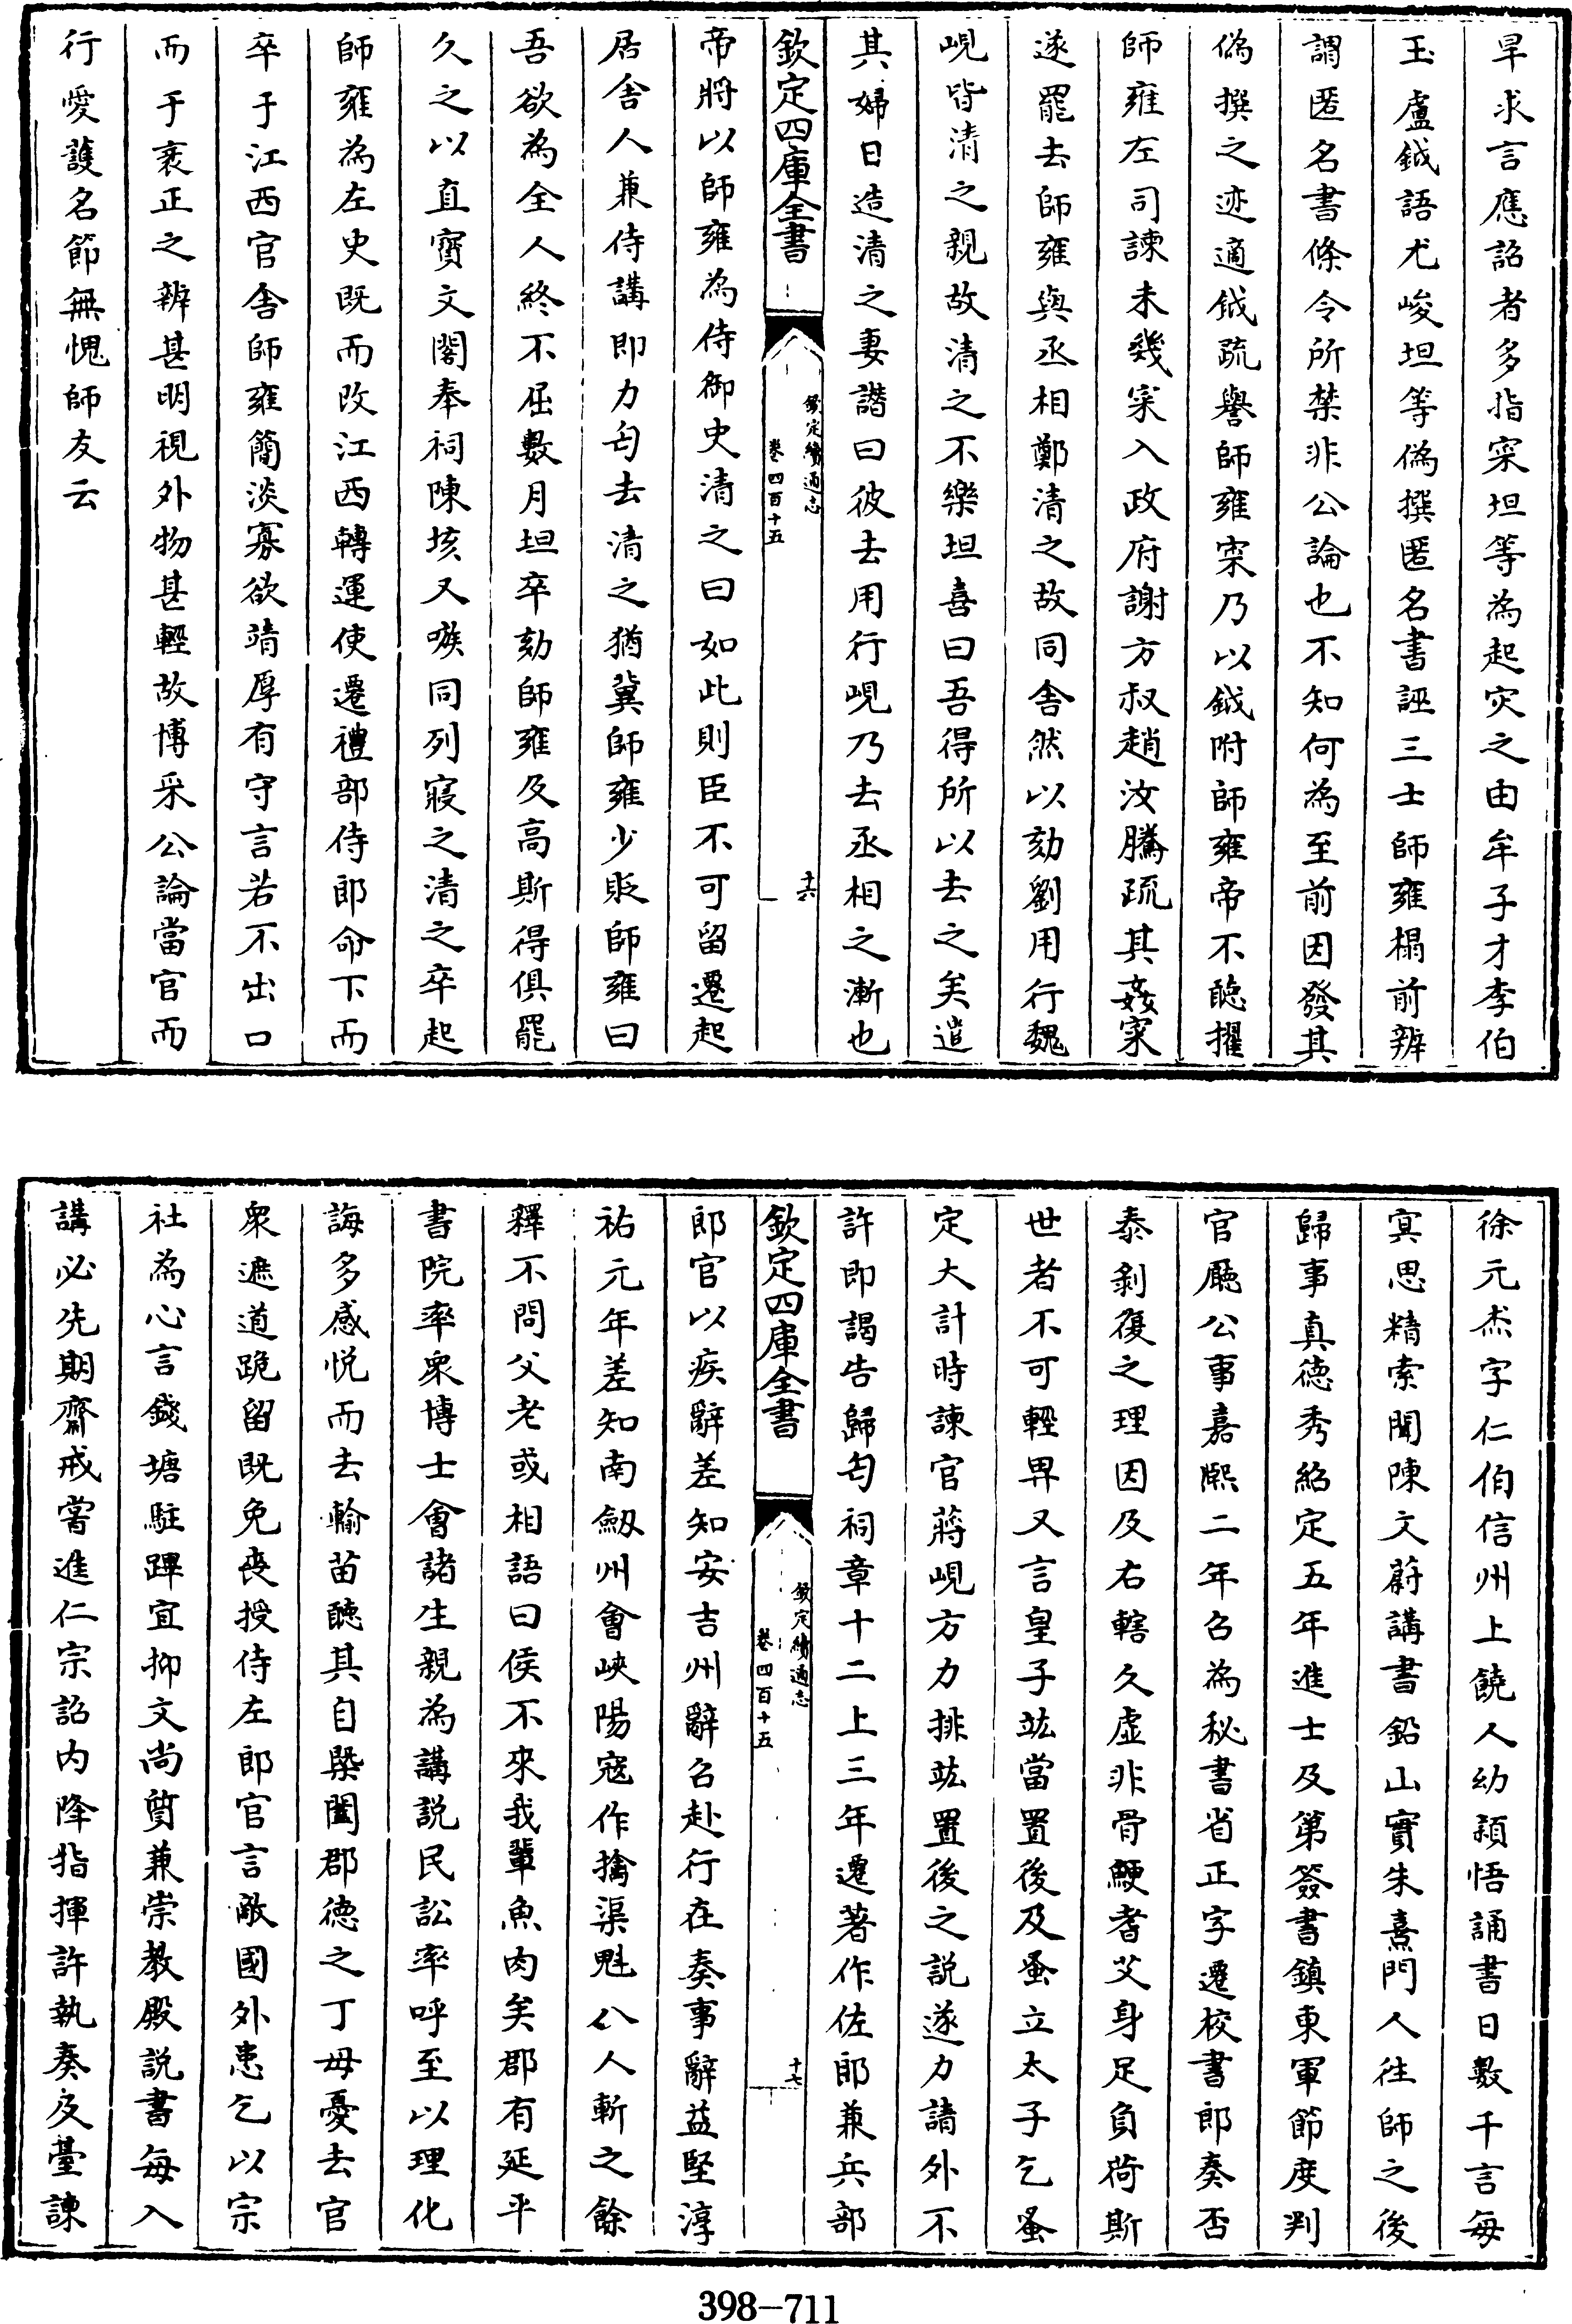 旱求言應詔者多指宷坦等為起灾之由牟子才李伯
玉盧鉞語尤峻坦等偽撰匿名書誣三士師雍榻前辨
謂匿名書條令所禁非公論也不知何為至前因發其
偽撰之迹適鉞疏譽師雍宷乃以鉞附師雍帝不聽擢
師雍左司諫未幾宷入政府謝方叔趙汝騰疏其姦宷
遂罷去師雍與丞相鄭清之故同舍然以劾劉用行魏
峴皆清之親故清之不樂坦喜曰吾得所以去之矣遣
其婦日造清之妻譖曰彼去用行峴乃去丞相之漸也
欽定四庫全書
欽定續通志
卷四百十五
十六
帝將以師雍為侍御史清之曰如此則臣不可留遷起
居舍人兼侍講即力匄去清之猶冀師雍少貶師雍曰
吾欲為全人終不屈數月坦卒劾師雍及高斯得俱罷
久之以直寶文閣奉祠陳垓又嗾同列寢之清之卒起
師雍為左史既而改江西轉運使遷禮部侍郎命下而
卒于江西官舍師雍簡淡寡欲靖厚有守言若不出口
而于衺正之辨甚明視外物甚輕故博采公論當官而
行愛護名節無愧師友云
徐元杰字仁伯信州上饒人幼穎悟誦書日數千言每
冥思精索聞陳文蔚講書鉛山實朱熹門人往師之後
歸事真德秀紹定五年進士及第簽書鎮東軍節度判
官廳公事嘉熙二年召為秘書省正字遷校書郎奏否
泰剝復之理因及右轄久虛非骨鯁耆艾身足負荷斯
世者不可輕畀又言皇子竑當置後及蚤立太子乞蚤
定大計時諫官蔣峴方力排竑置後之説遂力請外不
許即謁告歸匄祠章十二上三年遷著作佐郎兼兵部
欽定四庫全書
欽定續通志
卷四百十五
十七
郎官以疾辭差知安吉州辭召赴行在奏事辭益堅淳
祐元年差知南劍州會峽陽寇作擒渠魁八人斬之餘
釋不問父老或相語曰侯不來我輩魚肉矣郡有延平
書院率衆博士會諸生親為講説民訟率呼至以理化
誨多感悦而去輸苗聽其自槩闔郡德之丁母憂去官
衆遮道跪留既免喪授侍左郎官言敵國外患乞以宗
社為心言錢塘駐蹕宜抑文尚質兼崇教殿説書每入
講必先期齋戒嘗進仁宗詔内降指揮許執奏及臺諫
398-711